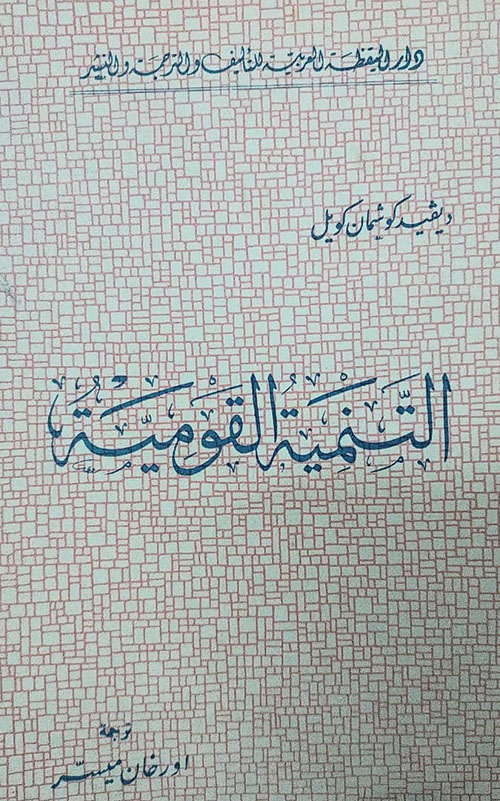 دار اليقظة العربية للتأليف والترجمة والنشر
ديڤيد كوشمان كويل
التَّنْمِيَةُ القَوْمِيَّةُ
ترجمة
اورخان ميسّر